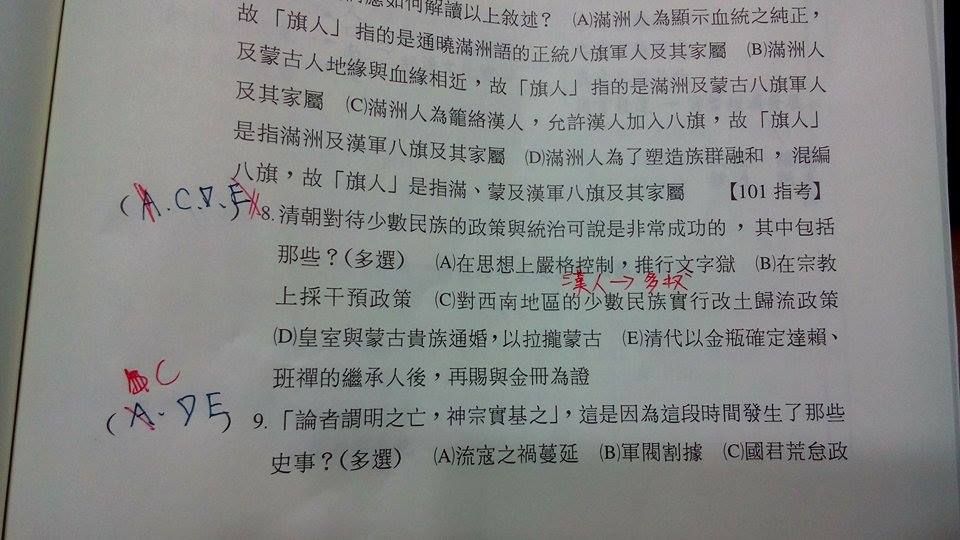 應如何解讀以上敘述？ (A)滿洲人為顯示血統之純正，
故「旗人」指的是通曉滿洲語的正統八旗軍人及其家屬 (B)滿洲人
及蒙古人地緣與血緣相近，故「旗人」指的是滿洲及蒙古八旗軍人
及其家屬 (C)滿洲人為籠絡漢人，允許漢人加入八旗，故「旗人」
是指滿洲及漢軍八旗及其家屬 (D)滿洲人為了塑造族群融和，混編
八旗，故「旗人」是指滿、蒙及漢軍八旗及其家屬 【101 指考】
(A.C.D.E) 8.清朝對待少數民族的政策與統治可說是非常成功的，其中包括
那些？(多選) (A)在思想上嚴格控制，推行文字獄 (B)在宗教
漢人→多
上採干預政策 (C)對西南地區的少數民族實行改土歸流政策
(D)皇室與蒙古貴族通婚，以拉攏蒙古 (E)清代以金瓶確定達賴、
班禪的繼承人後，再賜與金冊為證
C
(A.DE) 9.「論者謂明之亡，神宗實基之」，這是因為這段時間發生了那些
史事？(多選) (A)流寇之禍蔓延 (B)軍閥割據 (C)國君荒怠政